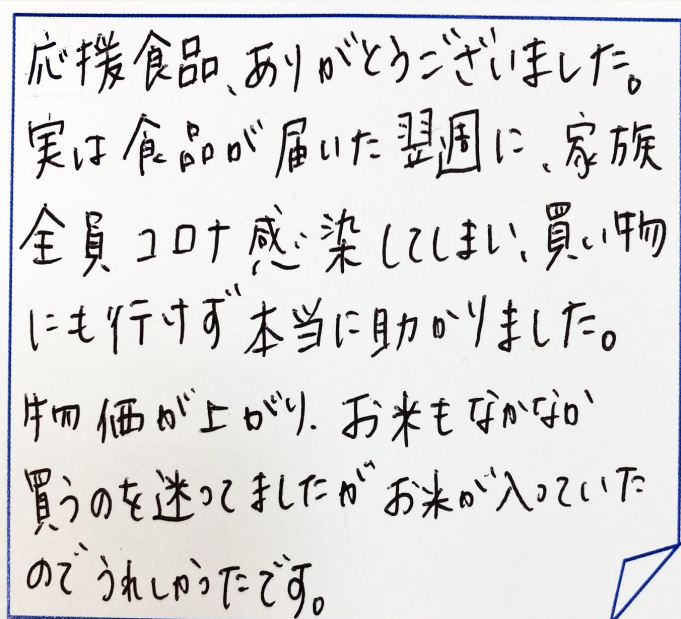 応援食品、ありがとうございました。
実は食品が届いた翌週に、家族
全員コロナ感染してしまい、買い物
にも行けず本当に助かりました。
物価が上がり、お米もなかなか
買うのを迷ってましたがお米が入っていた
のでうれしかったです。